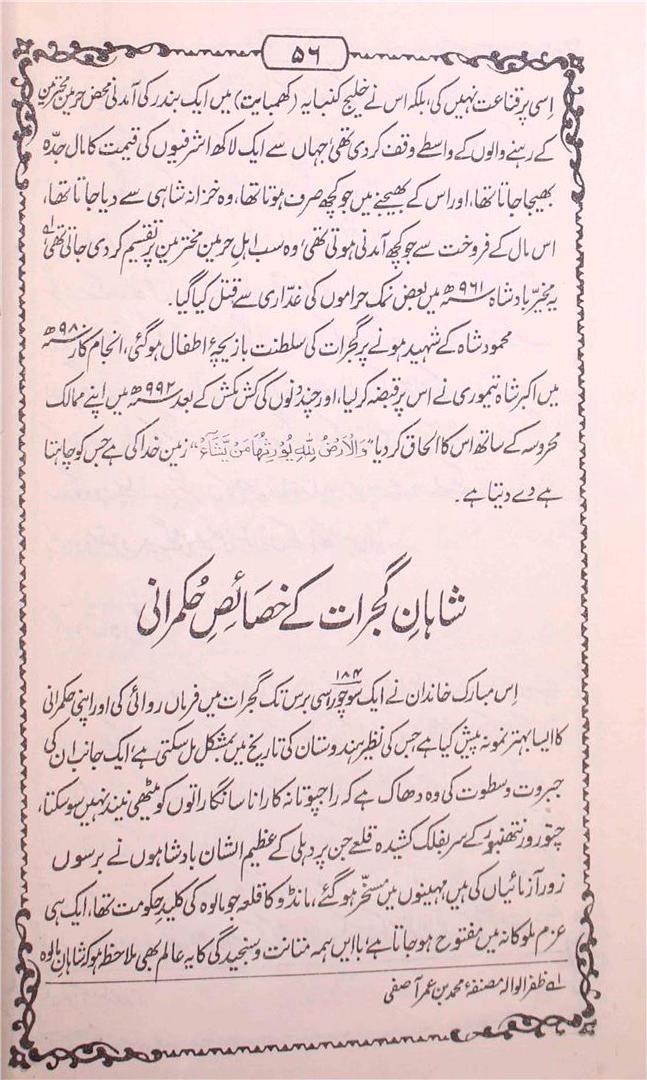 ۵۶
اِسی پر قناعت نہیں کی، بلکہ اس نے خلیج کنبایہ (کھمبایت) میں ایک بندر کی آمدنی محض حرمین محترمین
کے رہنے والوں کے واسطے وقف کردی تھی، جہاں سے ایک لاکھ اشرفیوں کی قیمت کا مال جدّہ
بھیجا جاتا تھا، اور اس کے بھیجنے میں جو کچھ صرف ہوتا تھا، وہ خزانہ شاہی سے دیا جاتا تھا،
اس مال کے فروخت سے جو کچھ آمدنی ہوتی تھی، وہ سب اہلِ حرمین محترمین پر تقسیم کردی جاتی تھی ۱؎
یہ مخیّر بادشاہ ۹۶۱ھ میں بعض نمک حراموں کی غدّاری سے قتل کیا گیا۔
محمود شاہ کے شہید ہونے پر گجرات کی سلطنت بازیچۂ اطفال ہوگئی، انجام کار ۹۸۰ھ
میں اکبر شاہ تیموری نے اس پر قبضہ کرلیا، اور چند دنوں کی کش مکش کے بعد ۹۹۲ھ میں اپنے ممالک
محروسہ کے ساتھ اس کا الحاق کردیا "وَالْاَرْضُ لِلّٰہِ یُوْرِثُھَا مَنْ یَّشَآءُ" زمین خدا کی ہے جس کو چاہتا
ہے دے دیتا ہے۔
شاہانِ گجرات کے خصائصِ حُکمرانی
اِس مبارک خاندان نے ایک سو چوراسی ۱۸۴ برس تک گجرات میں فرماں روائی کی اور اپنی حکمرانی
کا ایسا بہتر نمونہ پیش کیا ہے جس کی نظیر ہندوستان کی تاریخ میں بمشکل مل سکتی ہے، ایک جانب ان کی
جبروت و سطوت کی وہ دھاک ہے کہ راجپوتانہ کا رانا سانگا راتوں کو میٹھی نیند نہیں سو سکتا،
چتور و رنتھنبور کے سر بفلک کشیدہ قلعے جن پر دہلی کے عظیم الشان بادشاہوں نے برسوں
زور آزمائیاں کی ہیں، مہینوں میں مسخّر ہوگئے، مانڈو کا قلعہ جو مالوہ کی کلیدِ حکومت تھا، ایک ہی
عزم ملوکانہ میں مفتوح ہوجاتا ہے، باایں ہمہ متانت و سنجیدگی کا یہ عالم بھی ملاحظہ ہو کہ شاہانِ مالوہ
۱؎ ظفر الوالہ مصنفۂ محمد بن عمر آصفی